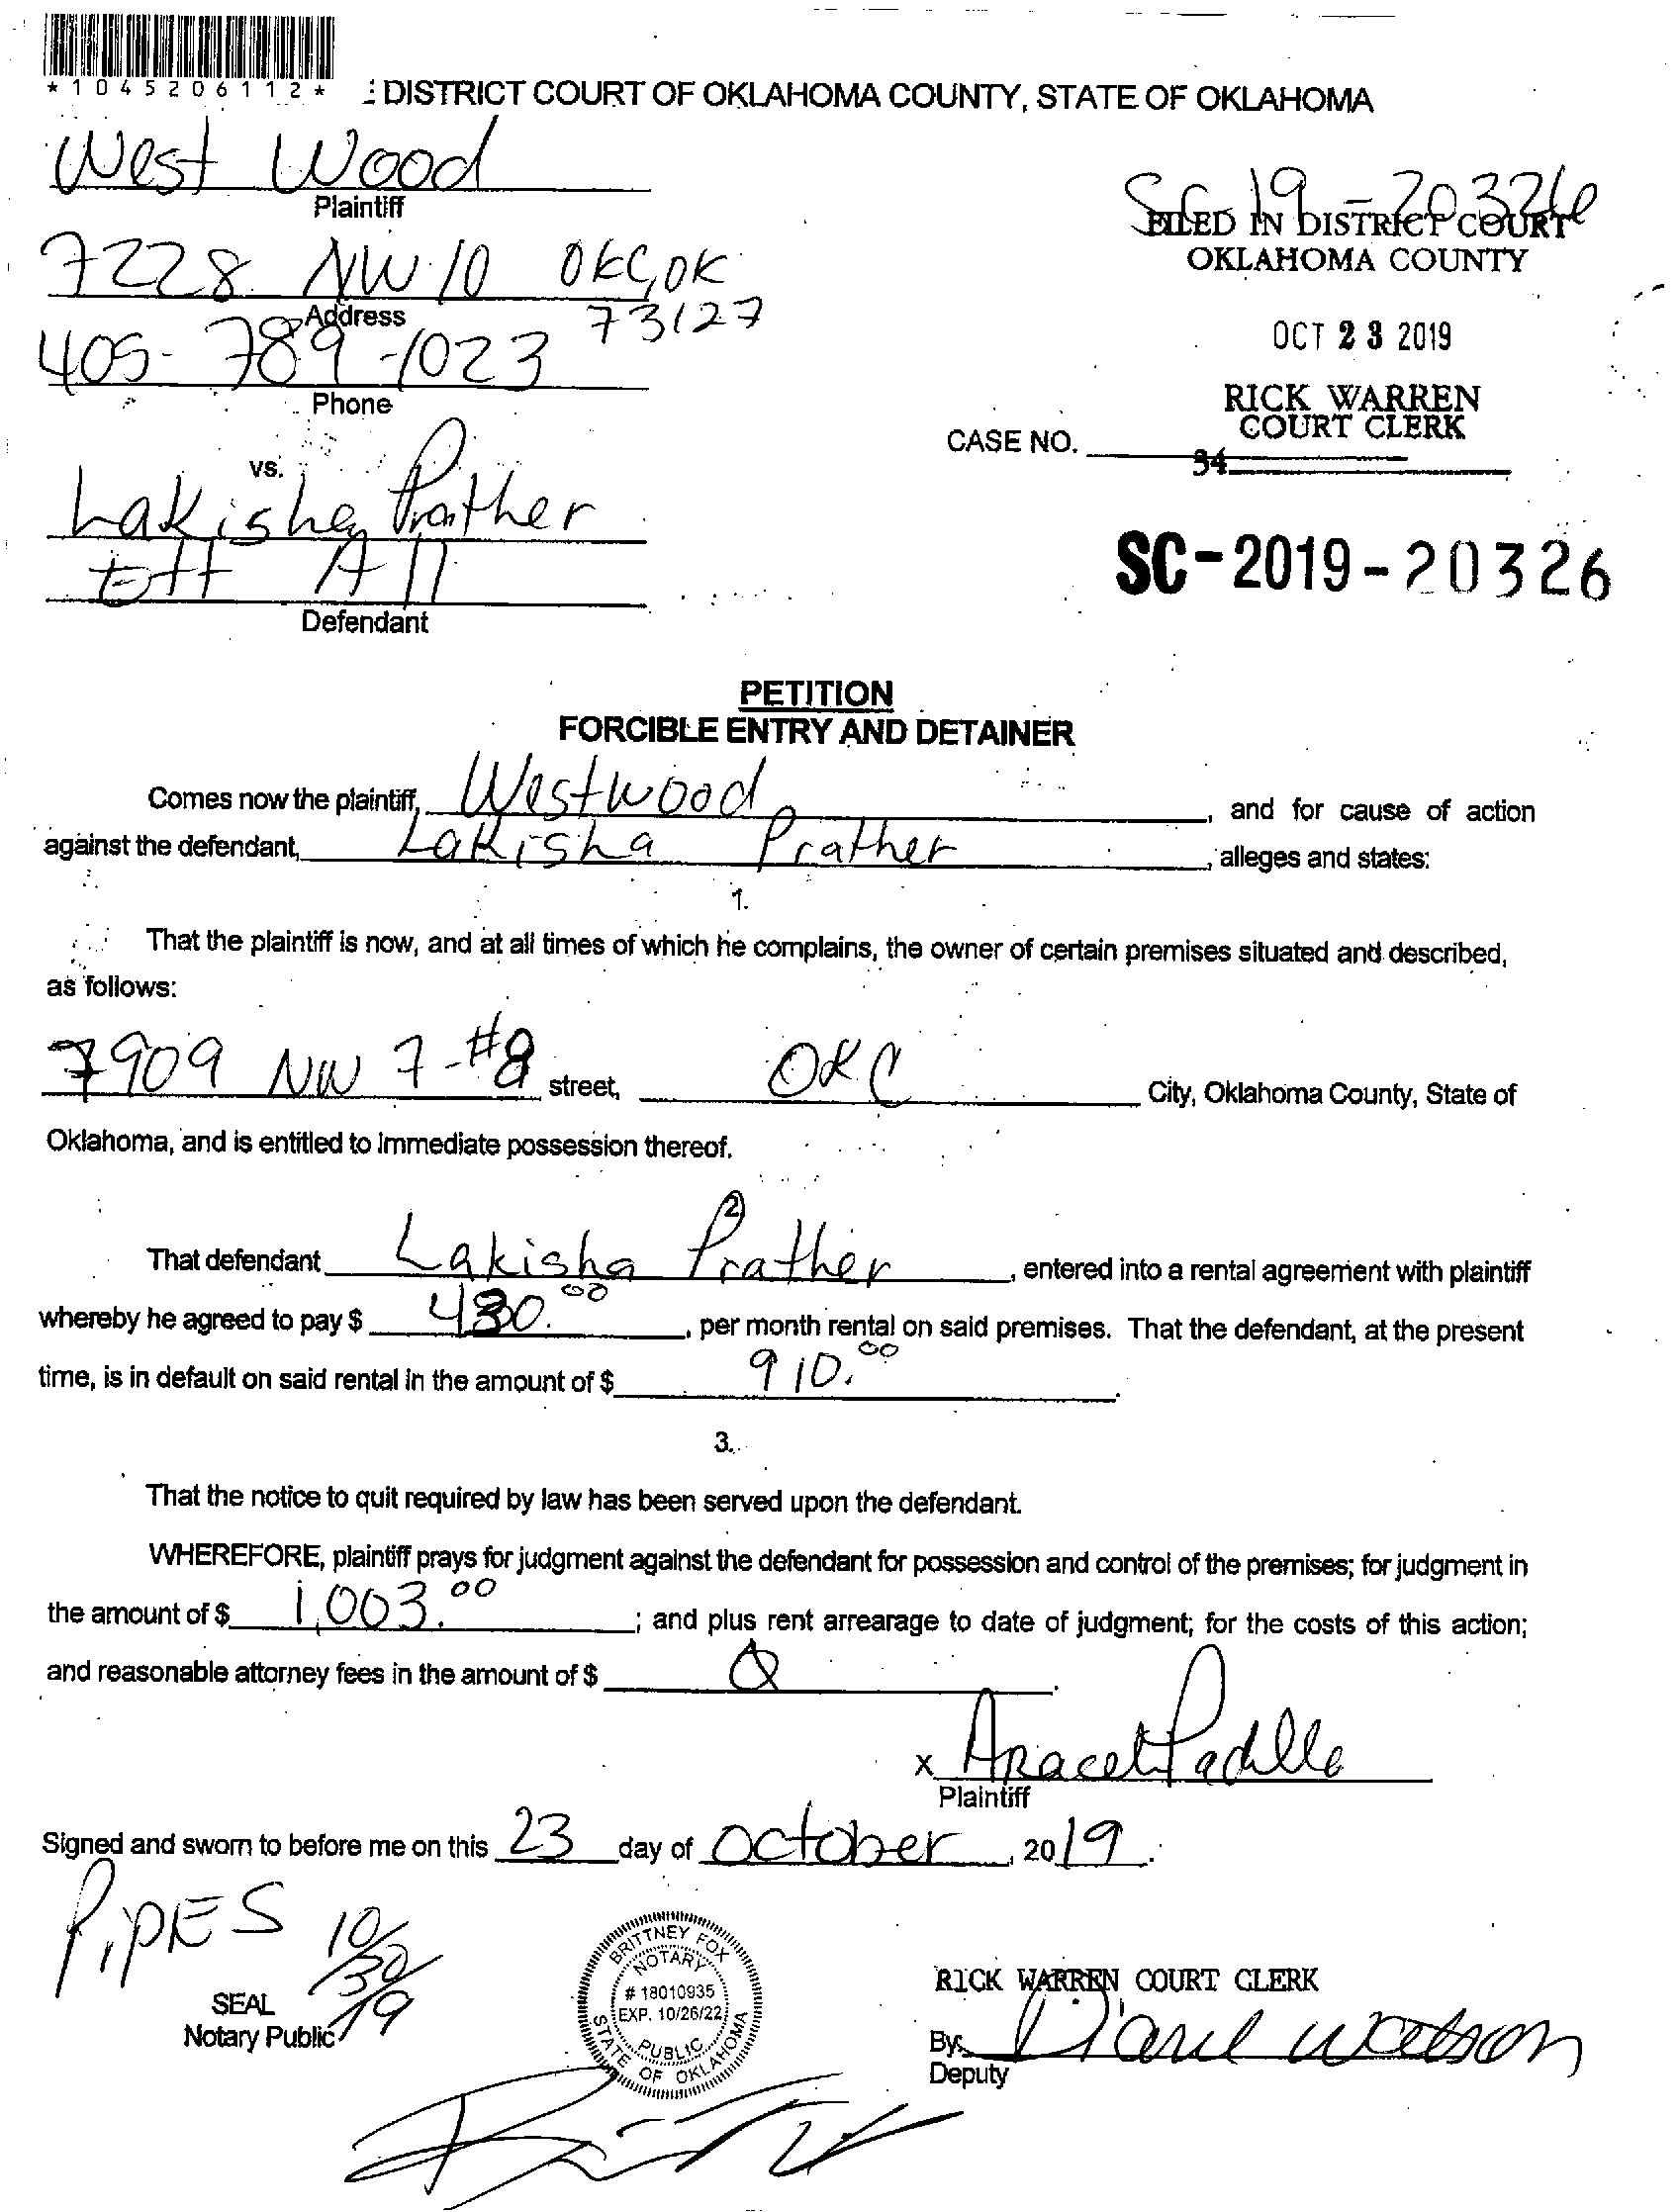 *1045206112*
: DISTRICT COURT OF OKLAHOMA COUNTY, STATE OF OKLAHOMA
West Wood
Plaintiff
SC-19-20326
FILED IN DISTRICT COURT
OKLAHOMA COUNTY
7228 NW 10 OKC, OK
73127
Address
405-789-1023
Phone
OCT 23 2019
RICK WARREN
COURT CLERK
CASE NO.
34
vs.
Lakisha Prather
Et All
Defendant
SC-2019-20326
PETITION
FORCIBLE ENTRY AND DETAINER
Comes now the plaintiff, Westwood, and for cause of action
against the defendant, Lakisha Prather, alleges and states:
1.
That the plaintiff is now, and at all times of which he complains, the owner of certain premises situated and described,
as follows:
7909 NW 7-#8 street, OKC City, Oklahoma County, State of
Oklahoma, and is entitled to immediate possession thereof.
2.
That defendant Lakisha Prather, entered into a rental agreement with plaintiff
whereby he agreed to pay $ 480.00, per month rental on said premises. That the defendant, at the present
time, is in default on said rental in the amount of $ 910.00.
3.
That the notice to quit required by law has been served upon the defendant.
WHEREFORE, plaintiff prays for judgment against the defendant for possession and control of the premises; for judgment in
the amount of $ 1,003.00; and plus rent arrearage to date of judgment; for the costs of this action;
and reasonable attorney fees in the amount of $ 0.
x Araceli Padilla
Plaintiff
Signed and sworn to before me on this 23 day of October, 2019.
PIPES 10/30/19
SEAL
Notary Public
BRITTNEY FOX
NOTARY
# 18010935
EXP. 10/26/22
PUBLIC
STATE OF OKLAHOMA
RICK WARREN COURT CLERK
By: Diane Watson
Deputy